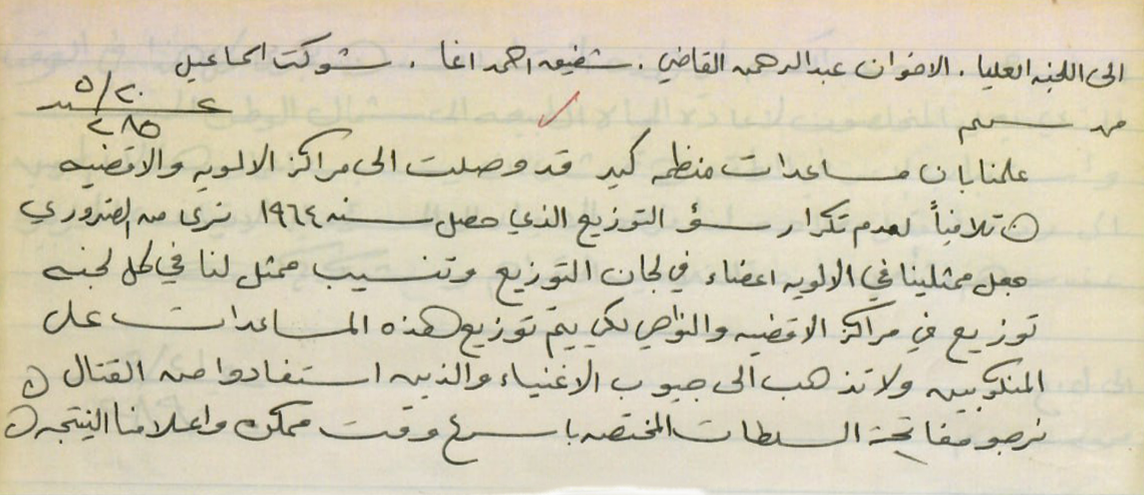 الى اللجنه العليا . الاخوان عبدالرحمن القاضي . شفيق احمد اغا . شوكت اسماعيل
من سليم
٥/٢٠
٢٨٥
علمنا بان مساعدات منظمه كير قد وصلت الى مراكز الالويه والاقضيه
ن تلافياً لعدم تكرار سؤ التوزيع الذي حصل سنه ١٩٦٤ نرى من الضروري
جعل ممثلينا في الالويه اعضاء في لجان التوزيع وتنسيب ممثل لنا في كل لجنه
توزيع في مراكز الاقضيه والنواحي لكي يتم توزيع هذه المساعدات على
المنكوبين ولا تذهب الى جيوب الاغنياء والذين استفادوا من القتال ن
نرجو مفاتحة السلطات المختصه باسرع وقت ممكن واعلامنا النتيجه ن